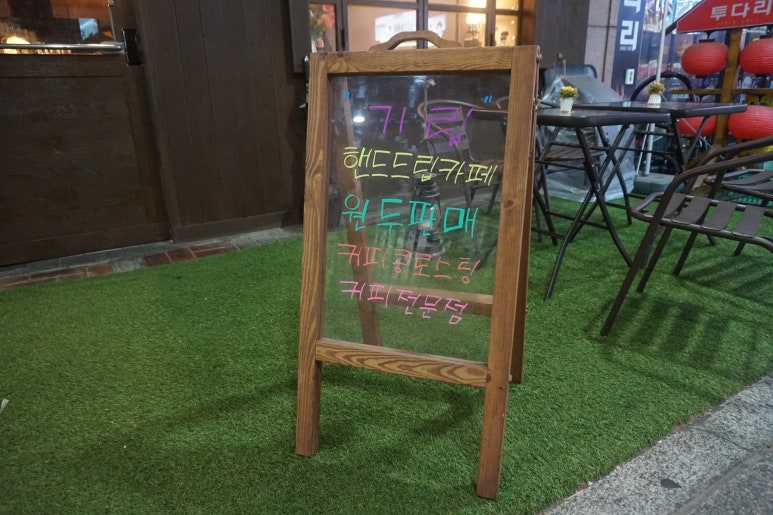 "기림"
핸드드립카페
원두판매
커피콩로스팅
커피전문점
투다리
리